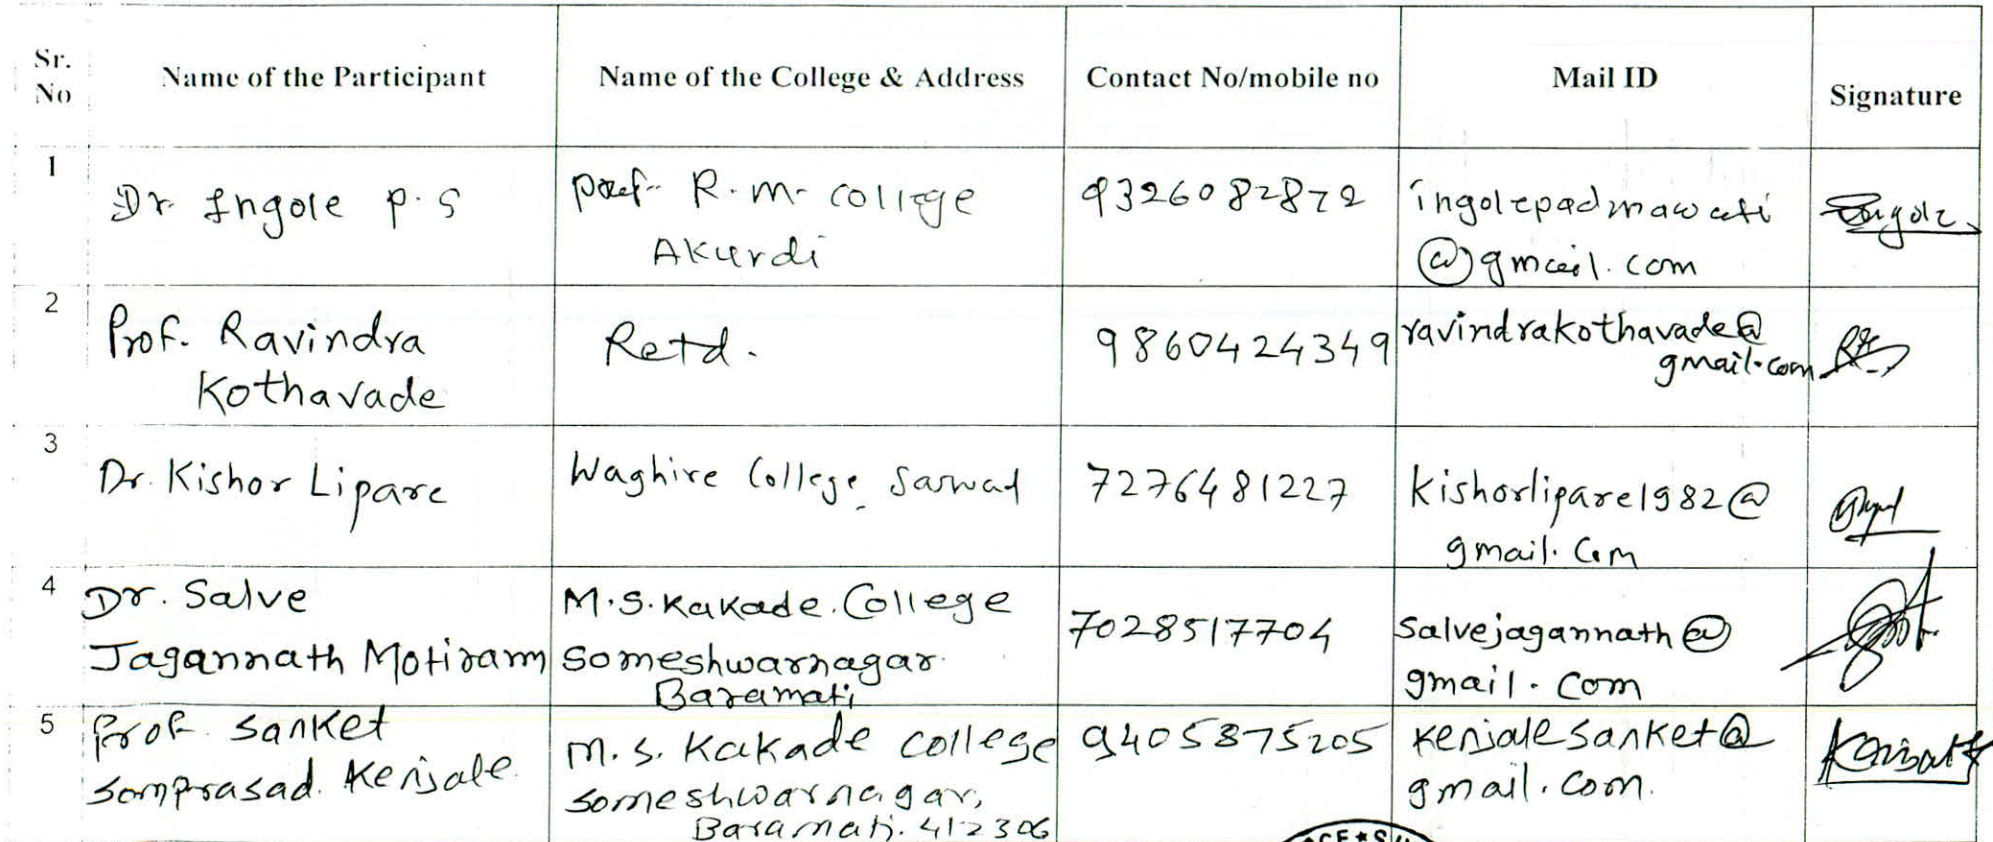 Sr. No
Name of the Participant
Name of the College & Address
Contact No/mobile no
Mail ID
Signature
1
Dr. Ingole P.S
Prof. R.M. College
Akurdi
9326082872
ingolepadmawati
@gmail.com
Ingole
2
Prof. Ravindra
Kothavade
Retd.
9860424349
ravindrakothavade@
gmail.com
3
Dr. Kishor Lipare
Waghire College, Saswad
7276481227
kishorlipare1982@
gmail.com
4
Dr. Salve
Jagannath Motiram
M.S. Kakade. College
Someshwarnagar
Baramati
7028517704
salvejagannath@
gmail.com
5
Prof. Sanket
Somprasad. Kenjale
M.S. Kakade College
Someshwarnagar,
Baramati. 412306
9405875205
kenjalesanket@
gmail.com.
Kenjale